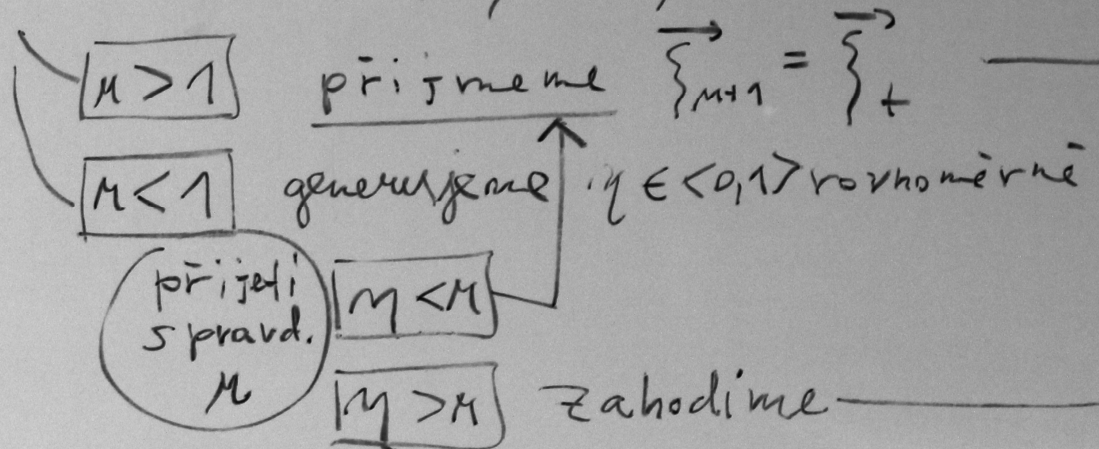 r > 1 přijmeme ξ⃗ₙ₊₁ = ξ⃗ₜ
r < 1 generujeme η ∈ <0,1> rovnoměrně
přijetí
s pravd.
r
η < r
η > r zahodíme